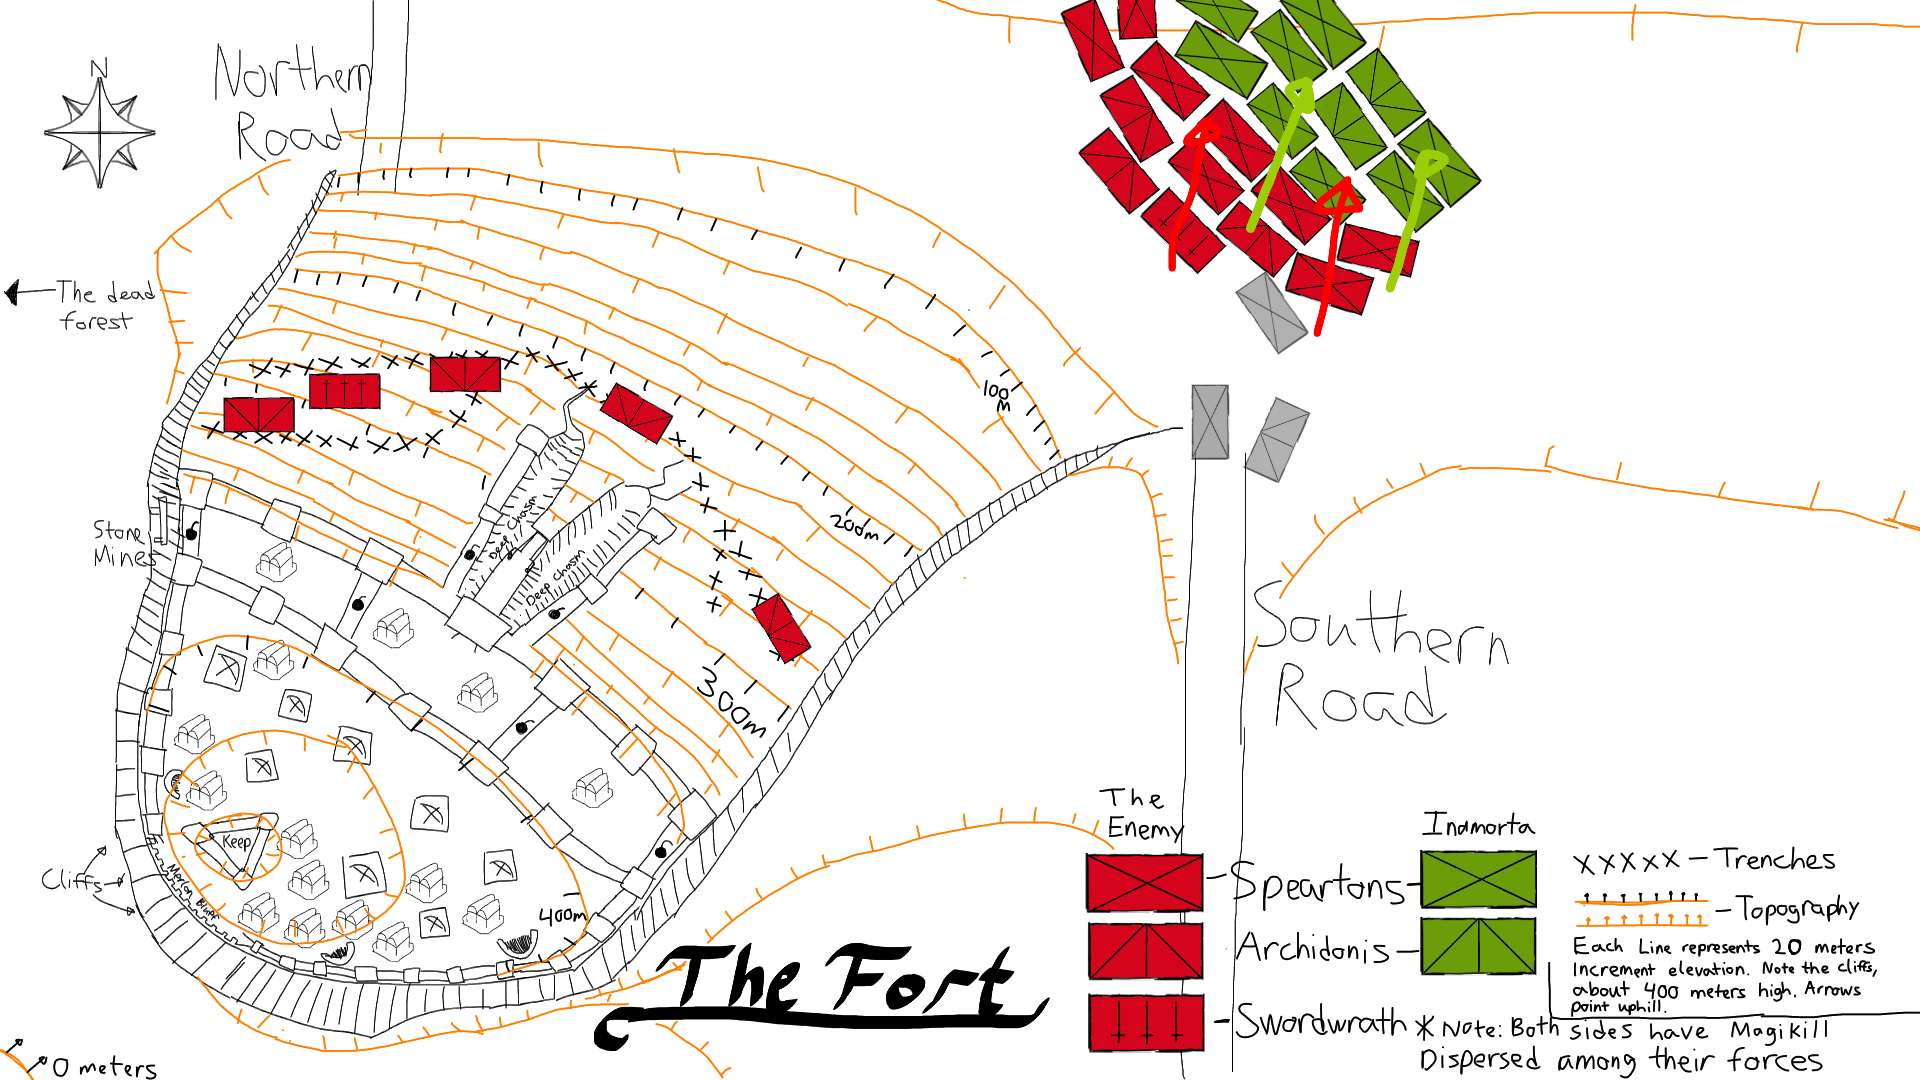 N
Northern
Road
The dead
forest
100
M
200m
300m
400m
Stone
Mines
Deep Chasm
Deep Chasm
Keep
Merlon Bluff
Cliffs
Southern
Road
The Fort
0 meters
The
Enemy
Inamorta
Speartons
Archidonis
Swordwrath
xxxxx - Trenches
- Topography
Each Line represents 20 meters
Increment elevation. Note the cliffs,
about 400 meters high. Arrows
point uphill.
* Note: Both sides have Magikill
Dispersed among their forces